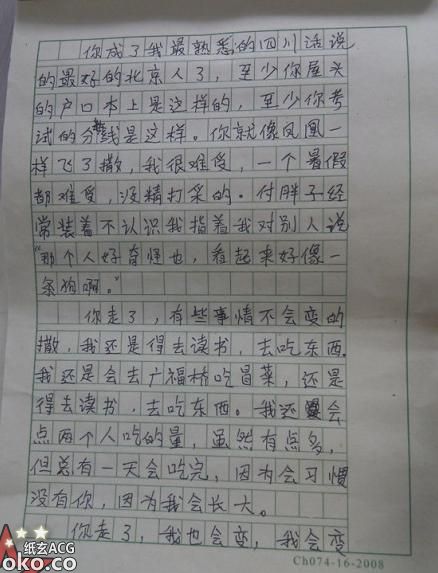 你成了我最熟悉的四川话说
的最好的北京人了，至少你屋头
的户口本上是这样的，至少你考
试的分数线是这样。你就像凤凰一
样飞了撒，我很难受，一个暑假
都难受，没精打采的。付胖子经
常装着不认识我指着我对别人说
“那个人好奇怪也，看起来好像一
条狗啊。”
你走了，有些事情不会变的
撒，我还是得去读书，去吃东西。
我还是会去广福桥吃冒菜，还是
得去读书，去吃东西。我还会
点两个人吃的量，虽然有点多，
但总有一天会吃完，因为会习惯
没有你，因为我会长大。
你走了，我也会变，我会变
Ch074-16-2008
纸玄ACG
oko.co